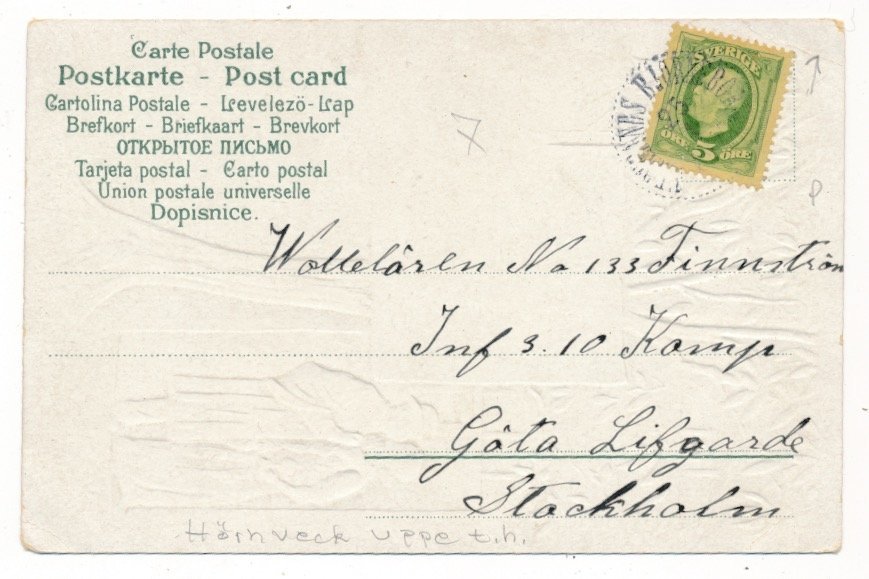 Carte Postale
Postkarte - Post card
Cartolina Postale - Levelezö-Lap
Brefkort - Briefkaart - Brevkort
ОТКРЫТОЕ ПИСЬМО
Tarjeta postal - Carto postal
Union postale universelle
Dopisnice.
SVERIGE
ÖRE 5 ÖRE
7
Wollelären No 133 Finnström
Inf 3. 10 Komp
Göta Lifgarde
Stockholm
Hörnveck uppe t.h.